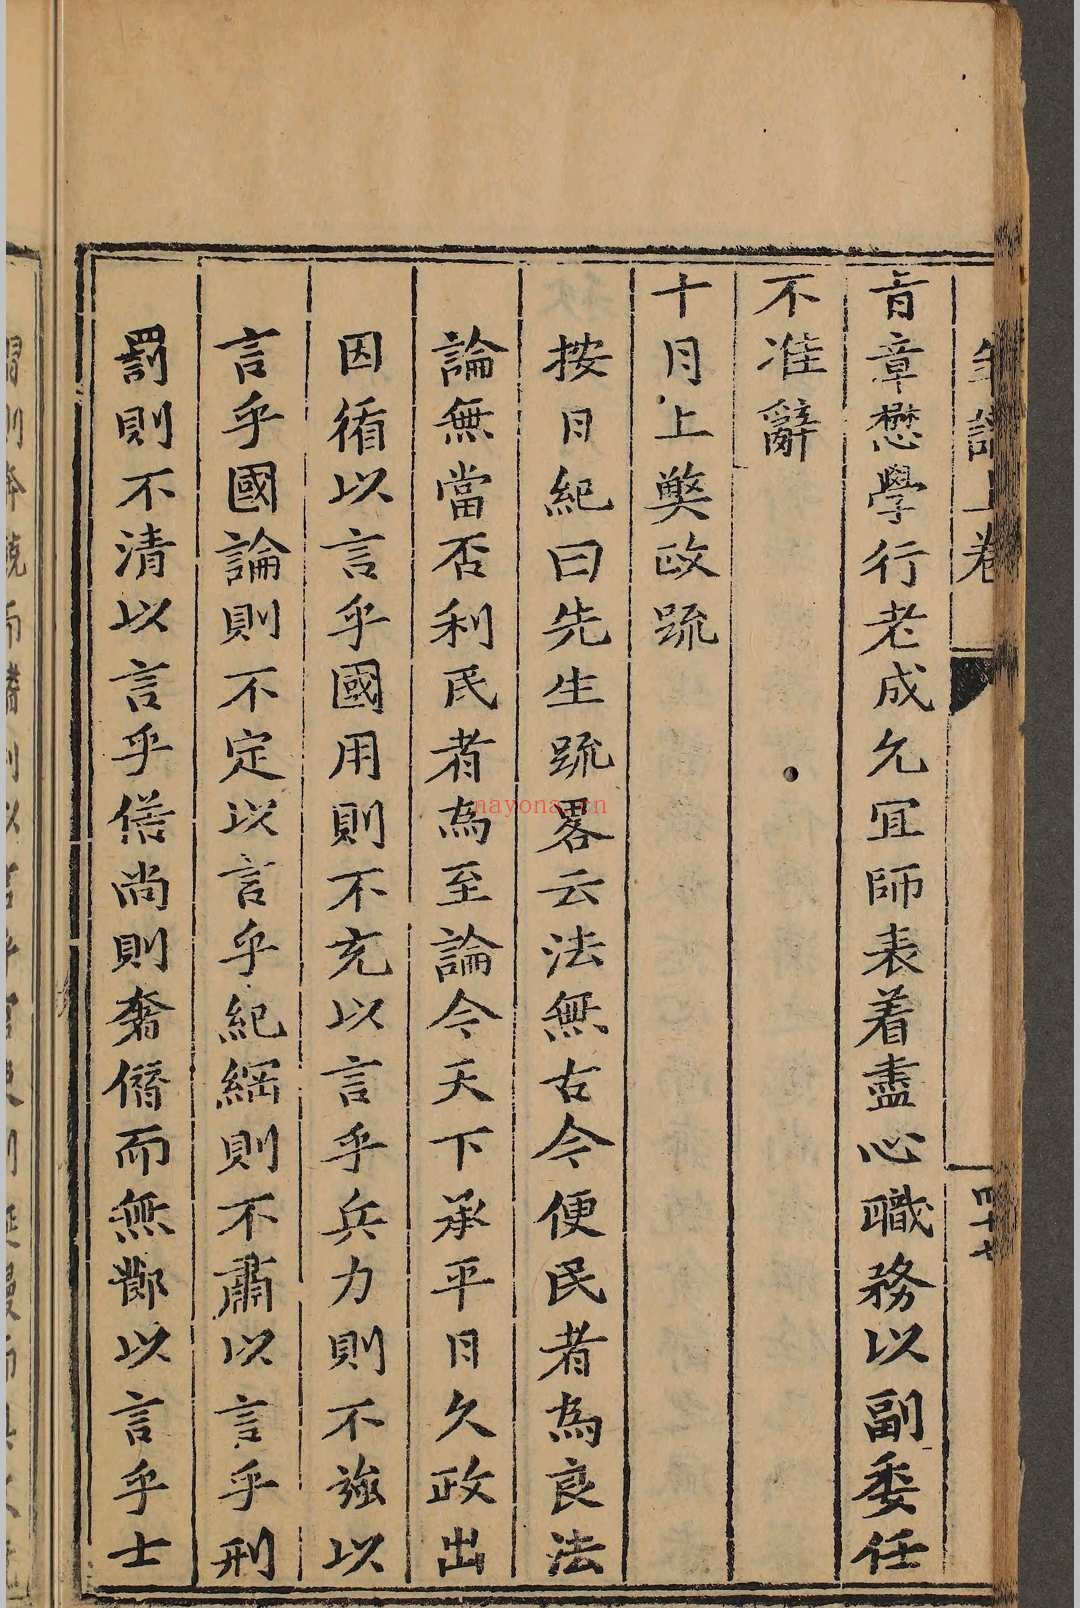 年譜上卷
四十七
旨章懋學行老成允冝師表着盡心職務以副委任
不准辭
十月上獘政疏
按日紀曰先生疏畧云法無古今便民者為良法
論無當否利民者為至論今天下承平日久政出
因循以言乎國用則不充以言乎兵力則不強以
言乎國論則不定以言乎紀綱則不肅以言乎刑
罰則不清以言乎俗尚則奢僭而無鄼以言乎士
nayona.cn